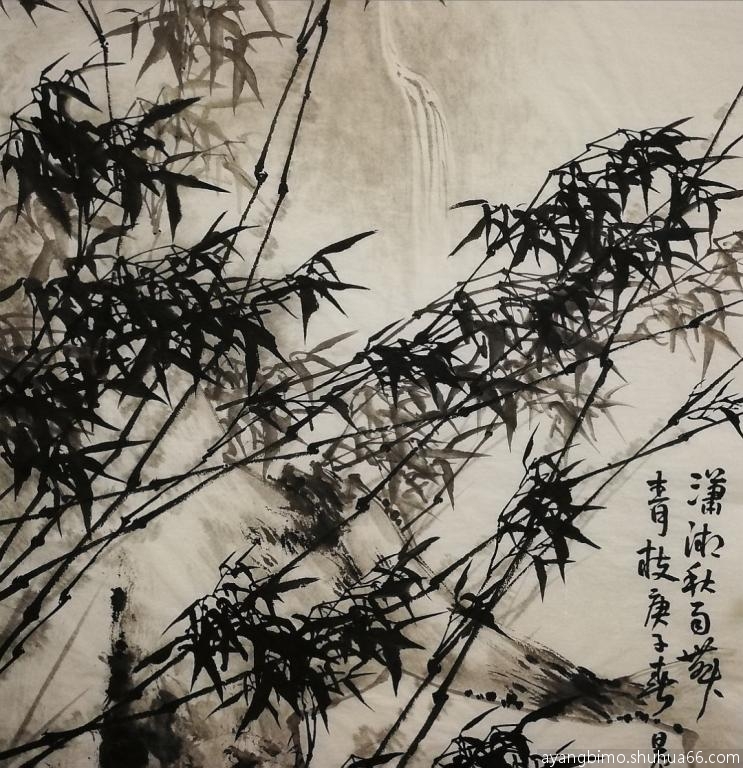 潇湘秋雨舞
青枝庚子春
ayangbimo.shuhua66.com